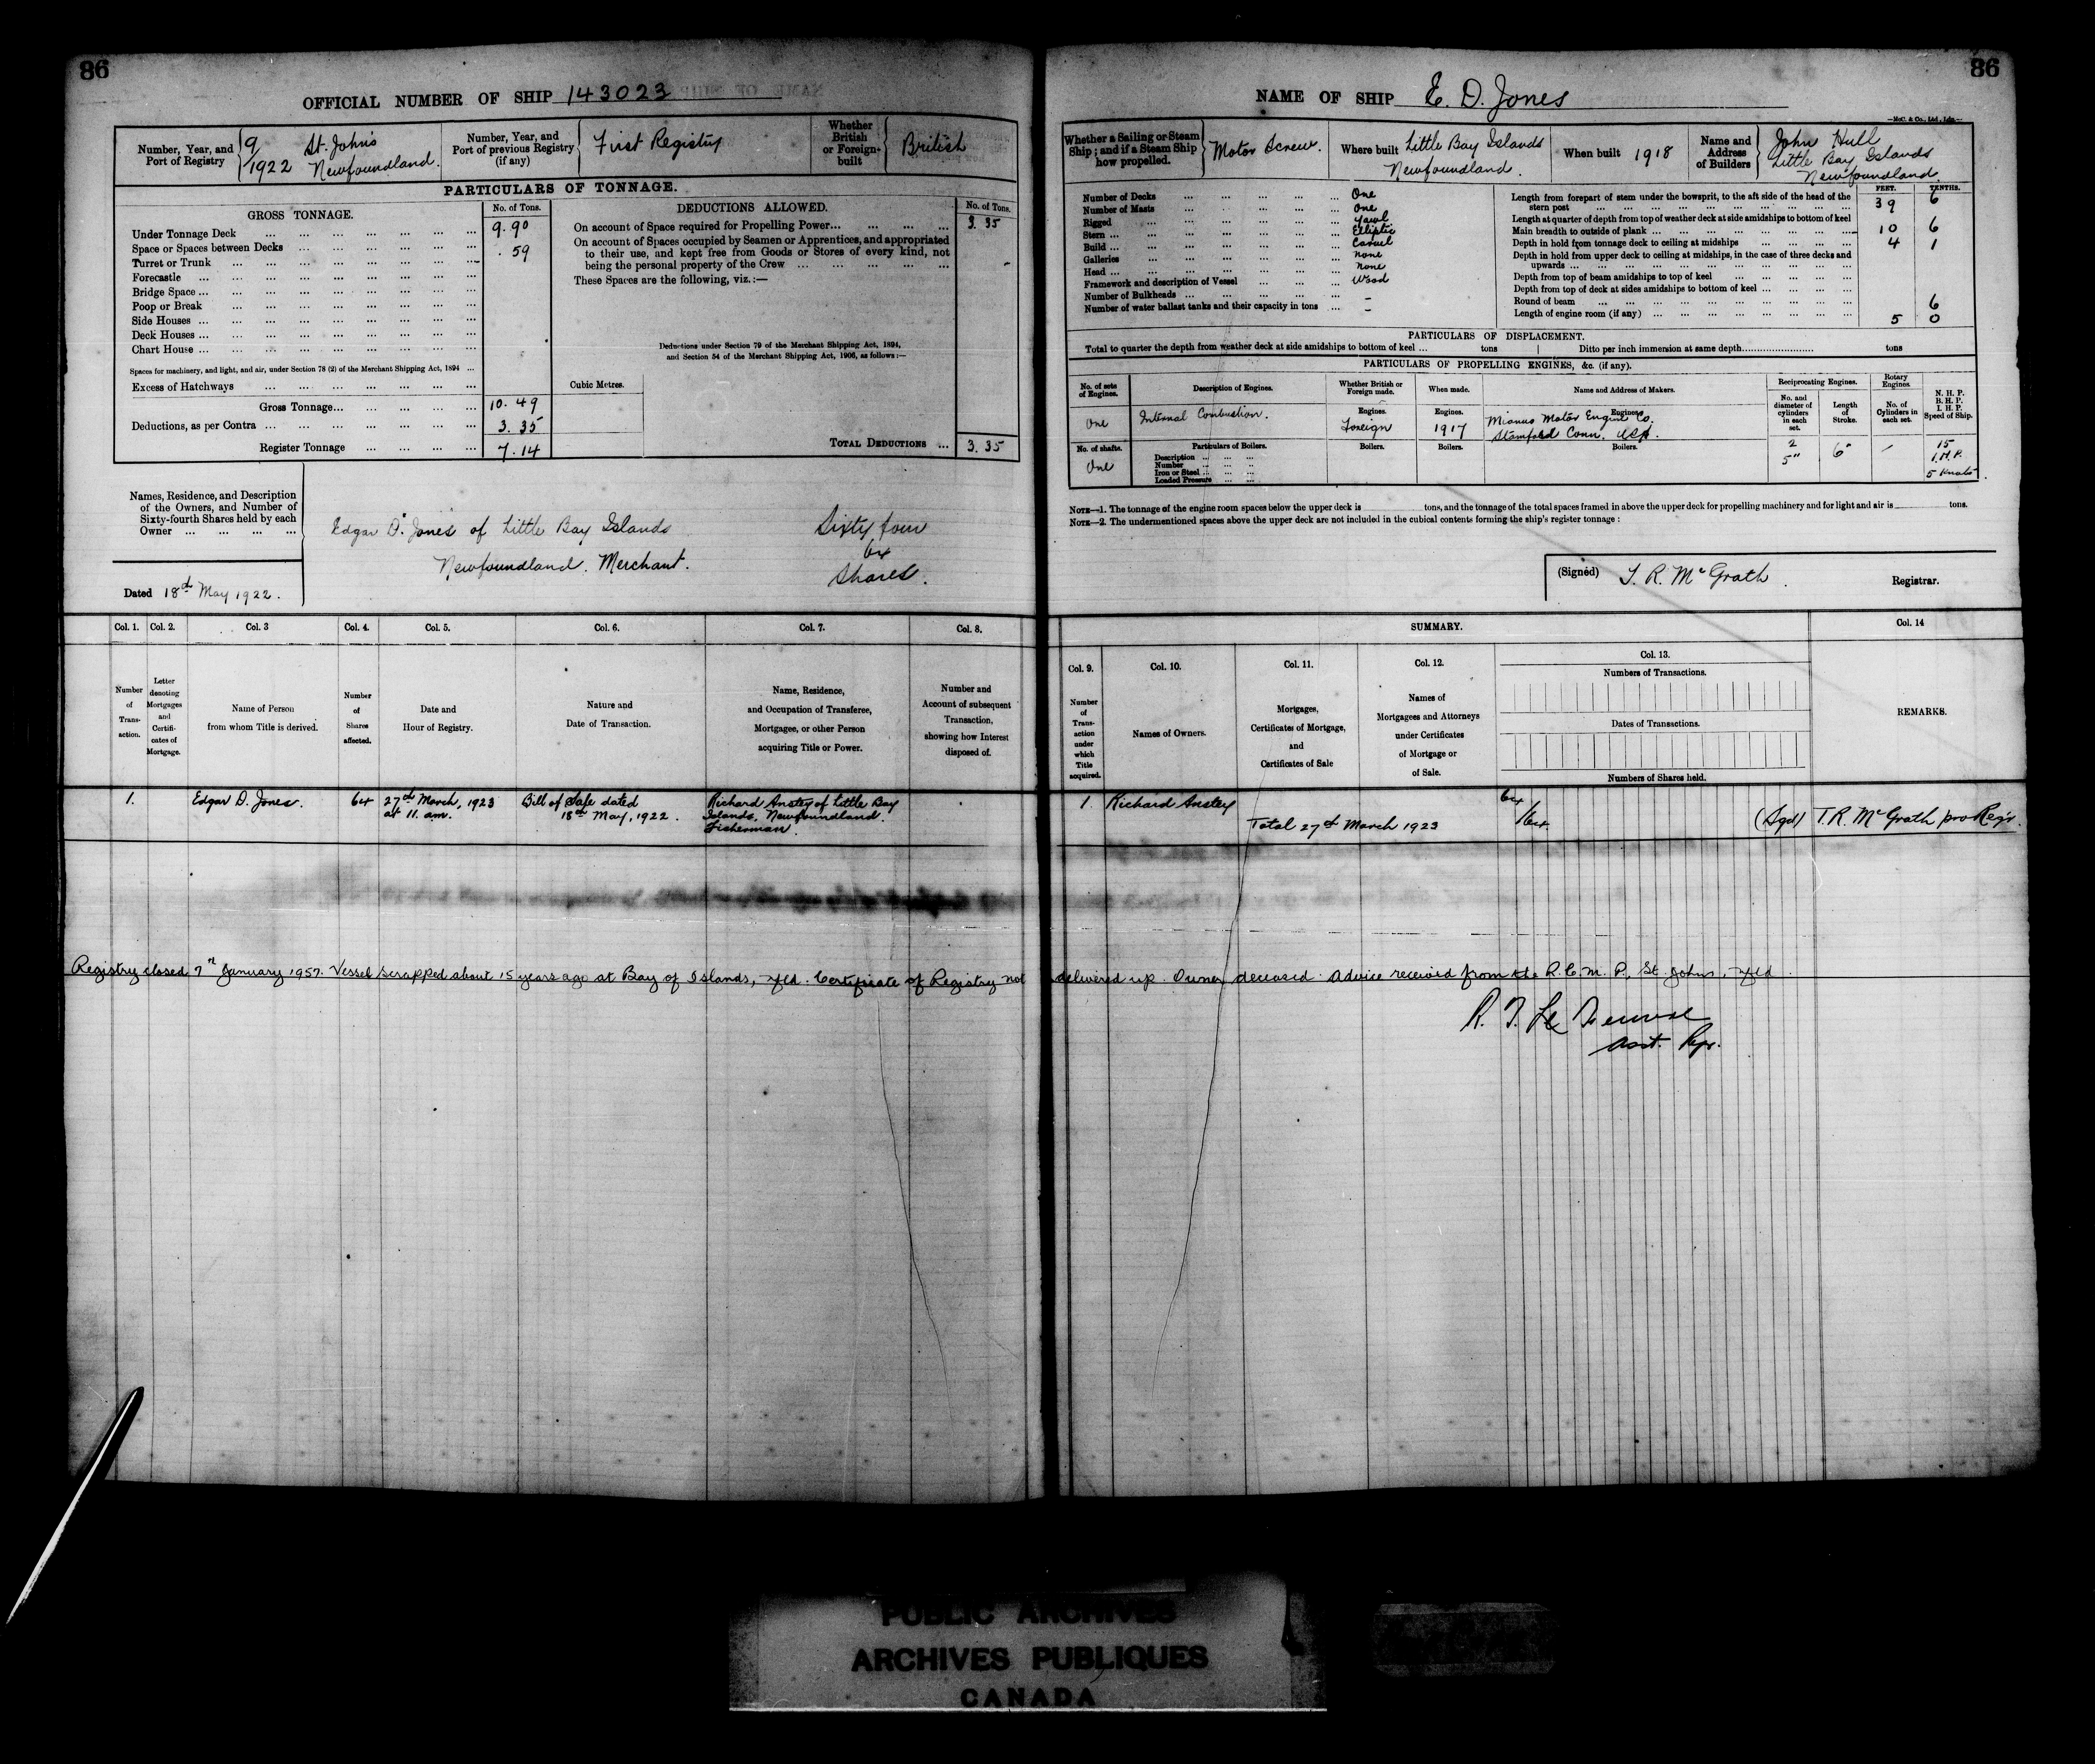 86
OFFICIAL NUMBER OF SHIP 143023
Number, Year, and Port of Registry
9
1922 St. John's Newfoundland.
Number, Year, and Port of previous Registry (if any)
First Registry
Whether British or Foreign-built
British
PARTICULARS OF TONNAGE.
GROSS TONNAGE.
No. of Tons.
Under Tonnage Deck ... 9.90
Space or Spaces between Decks ... .59
Turret or Trunk ...
Forecastle ...
Bridge Space ...
Poop or Break ...
Side Houses ...
Deck Houses ...
Chart House ...
Spaces for machinery, and light, and air, under Section 78 (2) of the Merchant Shipping Act, 1894 ...
Excess of Hatchways ...
Gross Tonnage... 10.49
Deductions, as per Contra ... 3.35
Register Tonnage ... 7.14
DEDUCTIONS ALLOWED.
No. of Tons.
On account of Space required for Propelling Power... 3.35
On account of Spaces occupied by Seamen or Apprentices, and appropriated
to their use, and kept free from Goods or Stores of every kind, not
being the personal property of the Crew ... -
These Spaces are the following, viz.:—
Deductions under Section 79 of the Merchant Shipping Act, 1894,
and Section 54 of the Merchant Shipping Act, 1906, as follows:—
Cubic Metres.
TOTAL DEDUCTIONS ... 3.35
Names, Residence, and Description
of the Owners, and Number of
Sixty-fourth Shares held by each
Owner ...
Edgar D. Jones of Little Bay Islands
Newfoundland. Merchant.
Sixty four
64
Shares.
Dated 18th May 1922.
Col. 1. Col. 2. Col. 3 Col. 4. Col. 5. Col. 6. Col. 7. Col. 8.
Number of Transaction.
Letter denoting Mortgages and Certificates of Mortgage.
Name of Person from whom Title is derived.
Number of Shares affected.
Date and Hour of Registry.
Nature and Date of Transaction.
Name, Residence, and Occupation of Transferee, Mortgagee, or other Person acquiring Title or Power.
Number and Account of subsequent Transaction, showing how Interest disposed of.
1. Edgar D. Jones. 64 27th March, 1923 at 11. a.m. Bill of Sale dated 18th May, 1922. Richard Anstey of Little Bay Islands, Newfoundland. Fisherman.
86
NAME OF SHIP E. D. Jones
—McC. & Co., Ltd., Ldn.—
Whether a Sailing or Steam Ship; and if a Steam Ship how propelled.
Motor Screw.
Where built Little Bay Islands Newfoundland.
When built 1918
Name and Address of Builders
John Hull
Little Bay Islands
Newfoundland.
Number of Decks ... One
Number of Masts ... One
Rigged ... Yawl
Stern ... Elliptic
Build ... Carvel
Galleries ... none
Head ... none
Framework and description of Vessel ... Wood
Number of Bulkheads ... -
Number of water ballast tanks and their capacity in tons ... -
FEET. TENTHS.
Length from forepart of stem under the bowsprit, to the aft side of the head of the
stern post ... 39 6
Length at quarter of depth from top of weather deck at side amidships to bottom of keel
Main breadth to outside of plank ... 10 6
Depth in hold from tonnage deck to ceiling at midships ... 4 1
Depth in hold from upper deck to ceiling at midships, in the case of three decks and
upwards ...
Depth from top of beam amidships to top of keel ...
Depth from top of deck at sides amidships to bottom of keel ...
Round of beam ... 6
Length of engine room (if any) ... 5 0
PARTICULARS OF DISPLACEMENT.
Total to quarter the depth from weather deck at side amidships to bottom of keel ... tons Ditto per inch immersion at same depth... tons
PARTICULARS OF PROPELLING ENGINES, &c. (if any).
No. of sets of Engines.
One
Description of Engines.
Internal Combustion.
Whether British or Foreign made.
Engines.
Foreign
When made.
Engines.
1917
Name and Address of Makers.
Engines.
Mianus Motor Engine Co.
Stamford Conn. USA.
Reciprocating Engines.
No. and diameter of cylinders in each set.
2
5"
Length of Stroke.
6"
Rotary Engines.
No. of Cylinders in each set.
N. H. P.
B. H. P.
I. H. P.
Speed of Ship.
15
I.H.P.
5 Knots
No. of shafts.
One
Particulars of Boilers.
Description ...
Number ...
Iron or Steel ...
Loaded Pressure ...
Boilers. Boilers. Boilers.
NOTE—1. The tonnage of the engine room spaces below the upper deck is tons, and the tonnage of the total spaces framed in above the upper deck for propelling machinery and for light and air is tons.
NOTE—2. The undermentioned spaces above the upper deck are not included in the cubical contents forming the ship's register tonnage:
(Signed) T. R. McGrath. Registrar.
SUMMARY.
Col. 9. Col. 10. Col. 11. Col. 12. Col. 13. Col. 14
Number of Transaction under which Title acquired.
Names of Owners.
Mortgages, Certificates of Mortgage, and Certificates of Sale
Names of Mortgagees and Attorneys under Certificates of Mortgage or of Sale.
Numbers of Transactions.
Dates of Transactions.
Numbers of Shares held.
REMARKS.
1. Richard Anstey 64
Total 27th March 1923 /64 (Sgd) T. R. McGrath pro Regr.
Registry closed 7th January 1957. Vessel scrapped about 15 years ago at Bay of Islands, Nfld. Certificate of Registry not delivered up. Owner deceased. Advice received from the R.C.M.P., St. Johns, Nfld.
Asst. Rgr.
PUBLIC ARCHIVES
ARCHIVES PUBLIQUES
CANADA